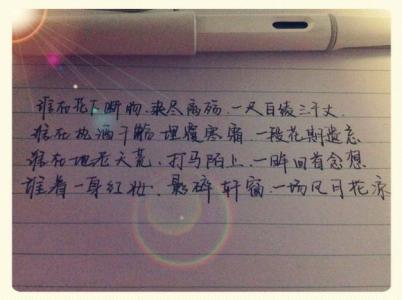 谁在花下断肠.衷尽离殇.一尺白绫三千丈.
谁在把酒千觞埋覆寒霜.一段花期遗忘
谁在地老天荒.打马陌上.一眸回首念想
谁着一身红妆.影碎轩窗.一场风月花凉